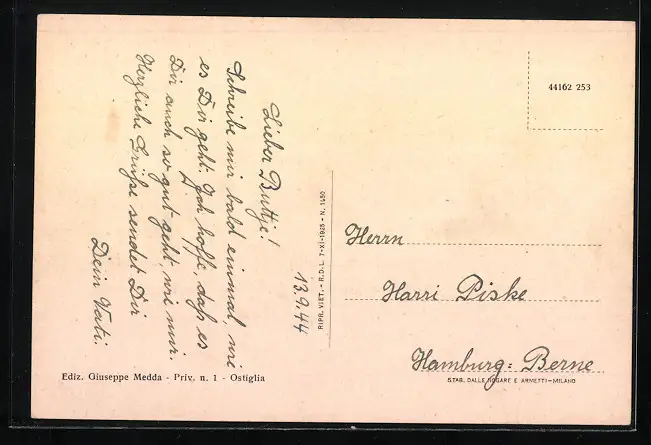 Lieber Buttje!
Schreibe mir bald einmal, wie
es Dir geht. Ich hoffe, daß es
Dir auch so gut geht, wie mir.
Herzliche Grüße sendet Dir
Dein Vati.
13.9.44
RIPR. VIET. - R.D.L. 7-XI-1925 - N. 1450
44162 253
Herrn
Harri Piske
Hamburg: Berne
STAB. DALLE NOGARE E ARMETTI-MILANO
Ediz. Giuseppe Medda - Priv. n. 1 - Ostiglia